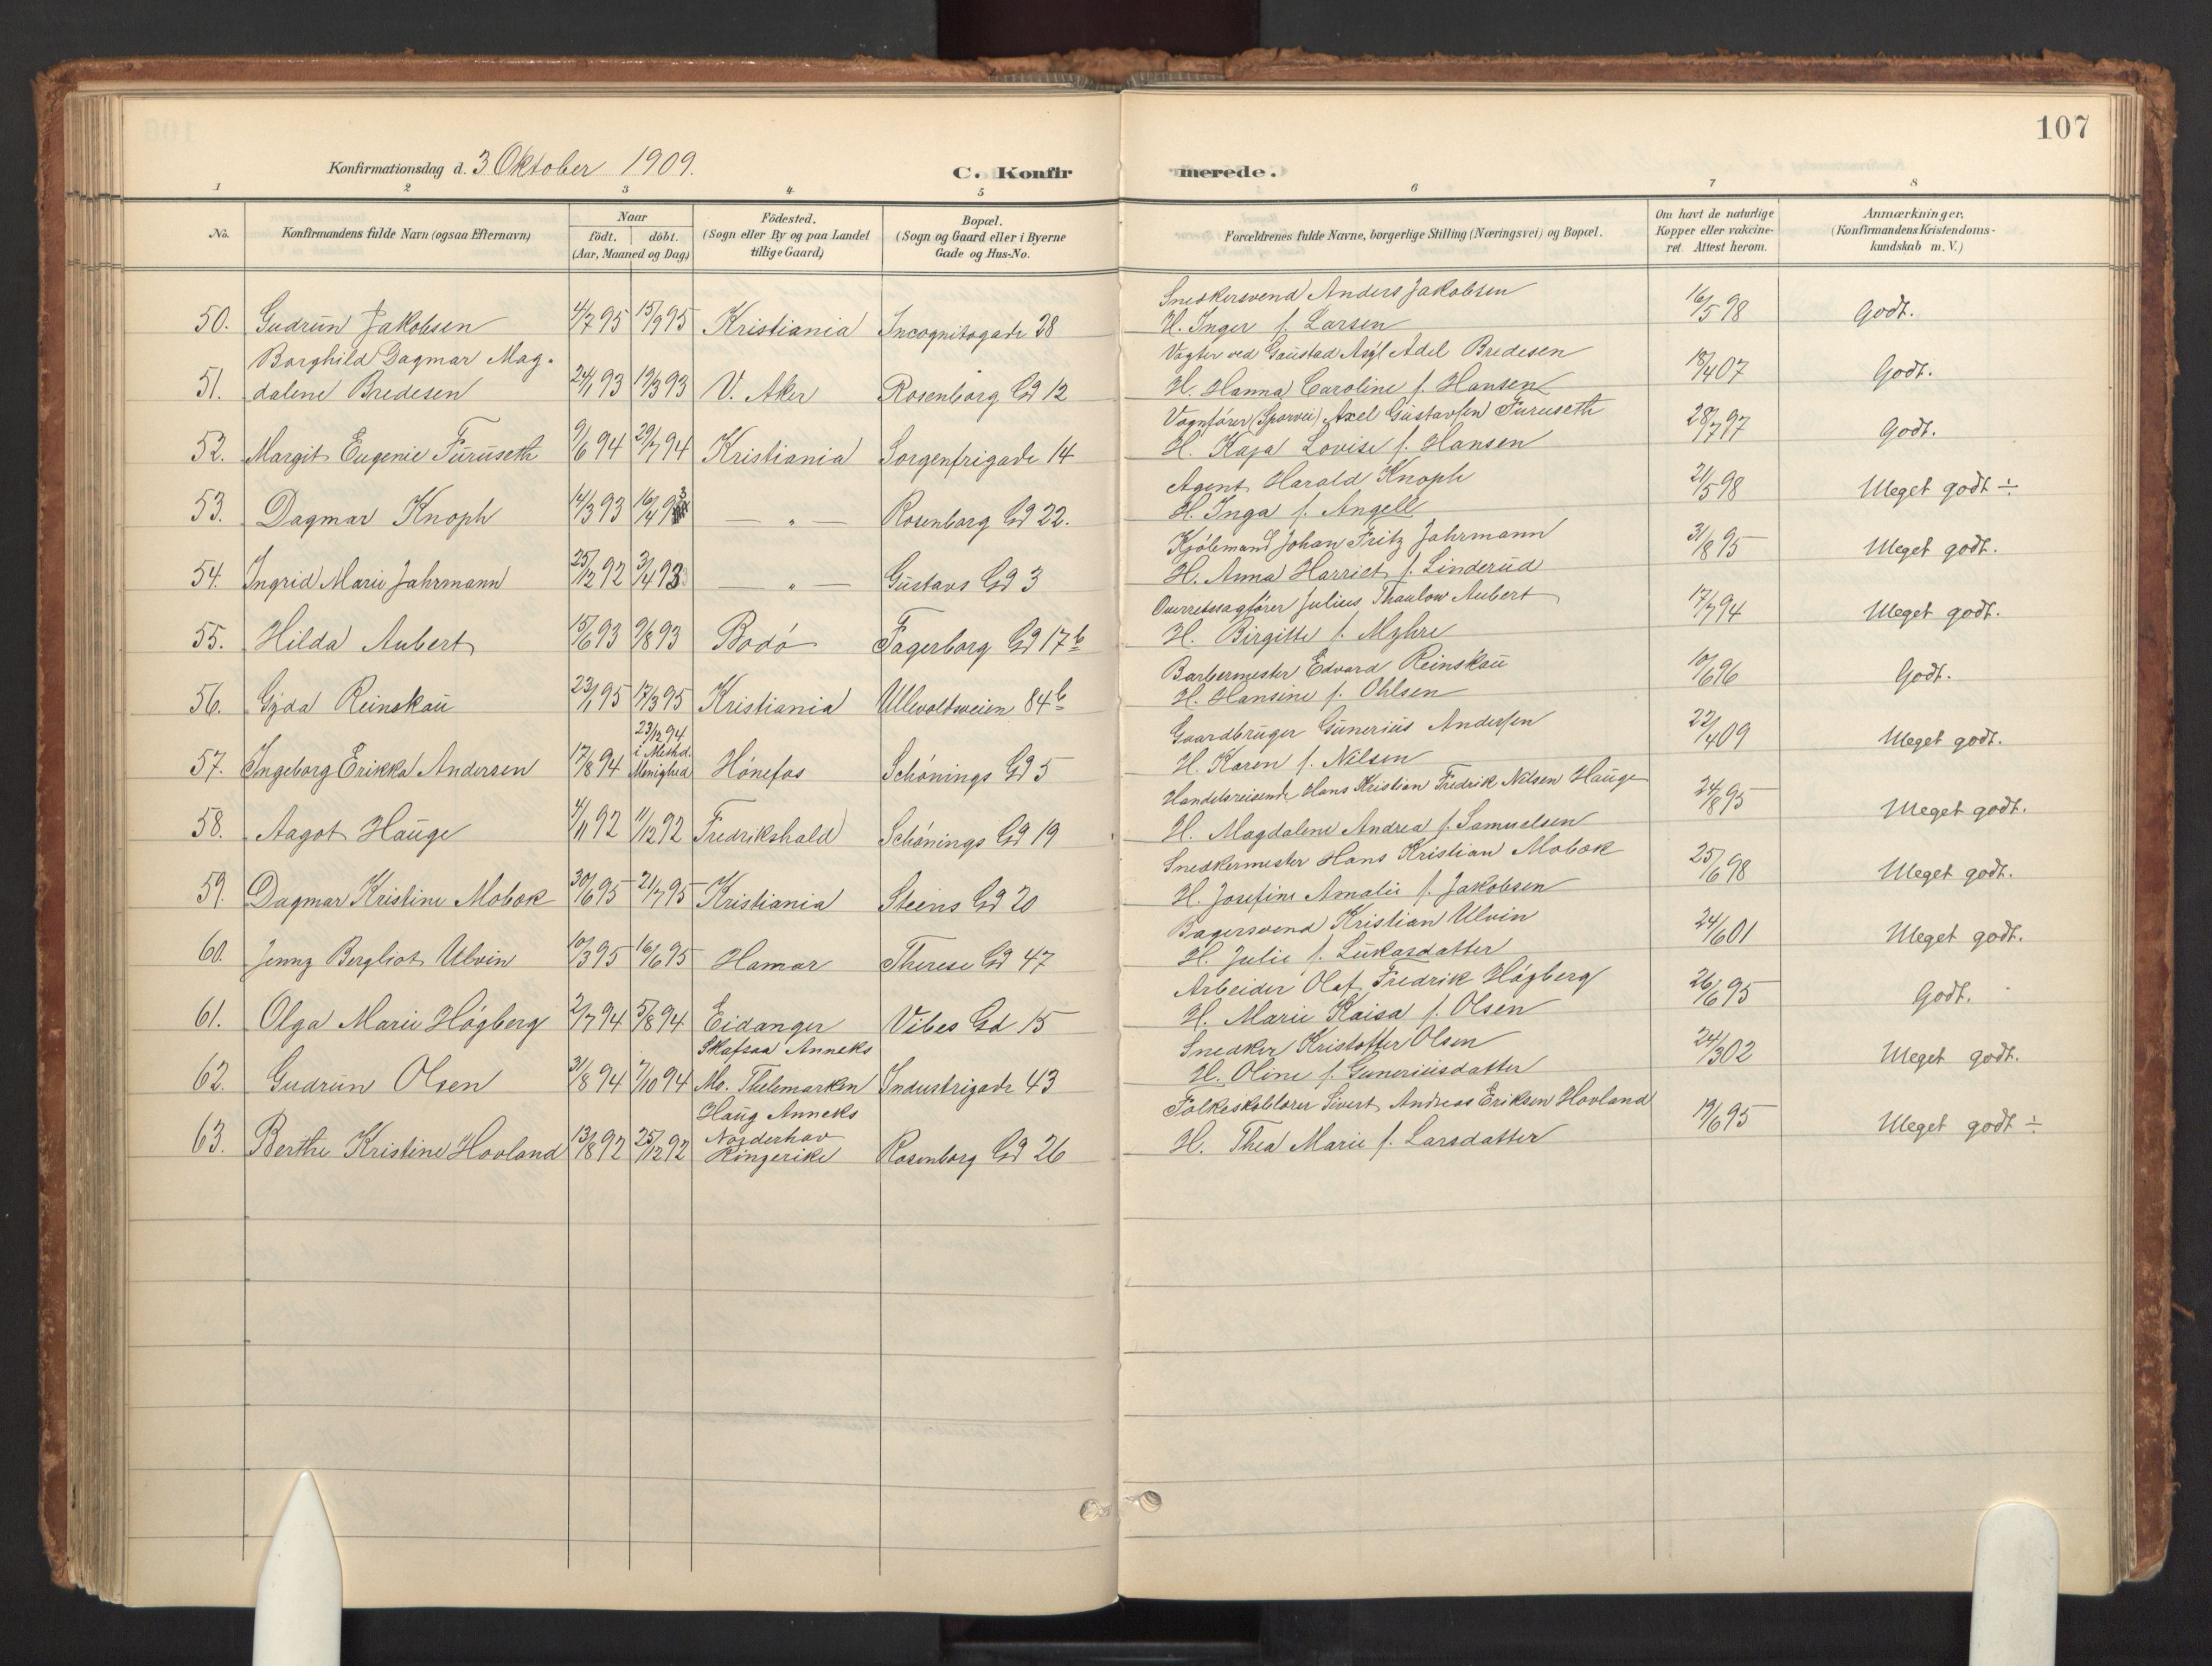 107
Konfirmationsdag d. 3 Oktober 1909.
C. Konfir
merede.
1 2 3 4 5 6 7 8
No.
Konfirmandens fulde Navn (ogsaa Efternavn)
Naar
födt. döbt.
(Aar, Maaned og Dag)
Födested.
(Sogn eller By og paa Landet
tillige Gaard)
Bopæl.
(Sogn og Gaard eller i Byerne
Gade og Hus-No.
Forældrenes fulde Navne, borgerlige Stilling (Næringsvei) og Bopæl.
Om havt de naturlige
Kopper eller vakcine-
ret. Attest herom.
Anmærkninger.
(Konfirmandens Kristendoms-
kundskab m. V.)
50. Gudrun Jakobsen 4/7 95 15/9 95 Kristiania Incognitogade 28
Snedkersvend Anders Jakobsen
H. Inger f. Larsen 16/5 98 Godt.
Borghild Dagmar Mag-
51. dalene Bredesen 24/1 93 19/3 93 V. Aker Rosenborg Gd 12
Vagter ved Gaustad Asyl Adel Bredesen
H. Hanna Caroline f. Hansen 18/4 07 Godt.
52. Margit Eugenie Furuseth 9/6 94 29/7 94 Kristiania Sorgenfrigade 14
Vognfører (Sporvei) Axel Gustavsen Furuseth
H. Kaja Lovise f. Hansen 28/7 97 Godt.
53. Dagmar Knoph 14/3 93 16/4 93 — " — Rosenborg Gd 22.
Agent Harald Knoph
H. Inga f. Angell 21/5 98 Meget godt ÷
54. Ingrid Marie Jahrmann 25/12 92 3/4 93 — " — Gustavs Gd 3
Kjøbmand Johan Fritz Jahrmann
H. Anna Harriet f. Linderud 31/8 95 Meget godt.
55. Hilda Aubert 15/6 93 9/8 93 Bodó Fagerborg Gd 17b
Overretssagfører Julius Thaulow Aubert
H. Birgitte f. Myhre 17/7 94 Meget godt.
56. Gyda Reinskau 23/1 95 17/3 95 Kristiania Ullevoldsveien 84b
Barbermester Edvard Reinskau
H. Hansine f. Ohlsen 10/6 96 Godt.
23/12 94
i Methd.
57. Ingeborg Erikka Andersen 17/8 94 Menighed Hónefos Schónings Gd 5
Gaardbruger Gunerius Andersen
H. Karen f. Nilsen 22/4 09 Meget godt.
58. Aagot Hauge 4/11 92 11/12 92 Fredrikshald Schónings Gd 19
Handelsreisende Hans Kristian Fredrik Nilsen Hauge
H. Magdalene Andrea f. Samuelsen 24/8 95 Meget godt.
59. Dagmar Kristine Mobæk 30/6 95 21/7 95 Kristiania Steens Gd 20
Snedkermester Hans Kristian Mobæk
H. Josefine Amalie f. Jakobsen 25/6 98 Meget godt.
60. Jenny Bergliot Ulvin 10/3 95 16/6 95 Hamar Therese Gd 47
Bagersvend Kristian Ulvin
H. Julie f. Lukasdatter 24/6 01 Meget godt.
61. Olga Marie Högberg 2/7 94 5/8 94 Eidanger Vibes Gd 15
Arbeider Olaf Fredrik Högberg
H. Marie Kaisa f. Olsen 26/6 95 Godt.
Skafsaa Anneks
62. Gudrun Olsen 31/8 94 7/10 94 Mo. Thelemarken Industrigade 43
Snedker Kristoffer Olsen
H. Oline f. Guneriusdatter 24/3 02 Meget godt.
Haug Anneks
Norderhov
63. Berthe Kristine Hovland 13/8 92 25/12 92 Ringerike Rosenborg Gd 26
Folkeskolelærer Sivert Andreas Eriksen Hovland
H. Thea Marie f. Larsdatter 19/6 95 Meget godt ÷